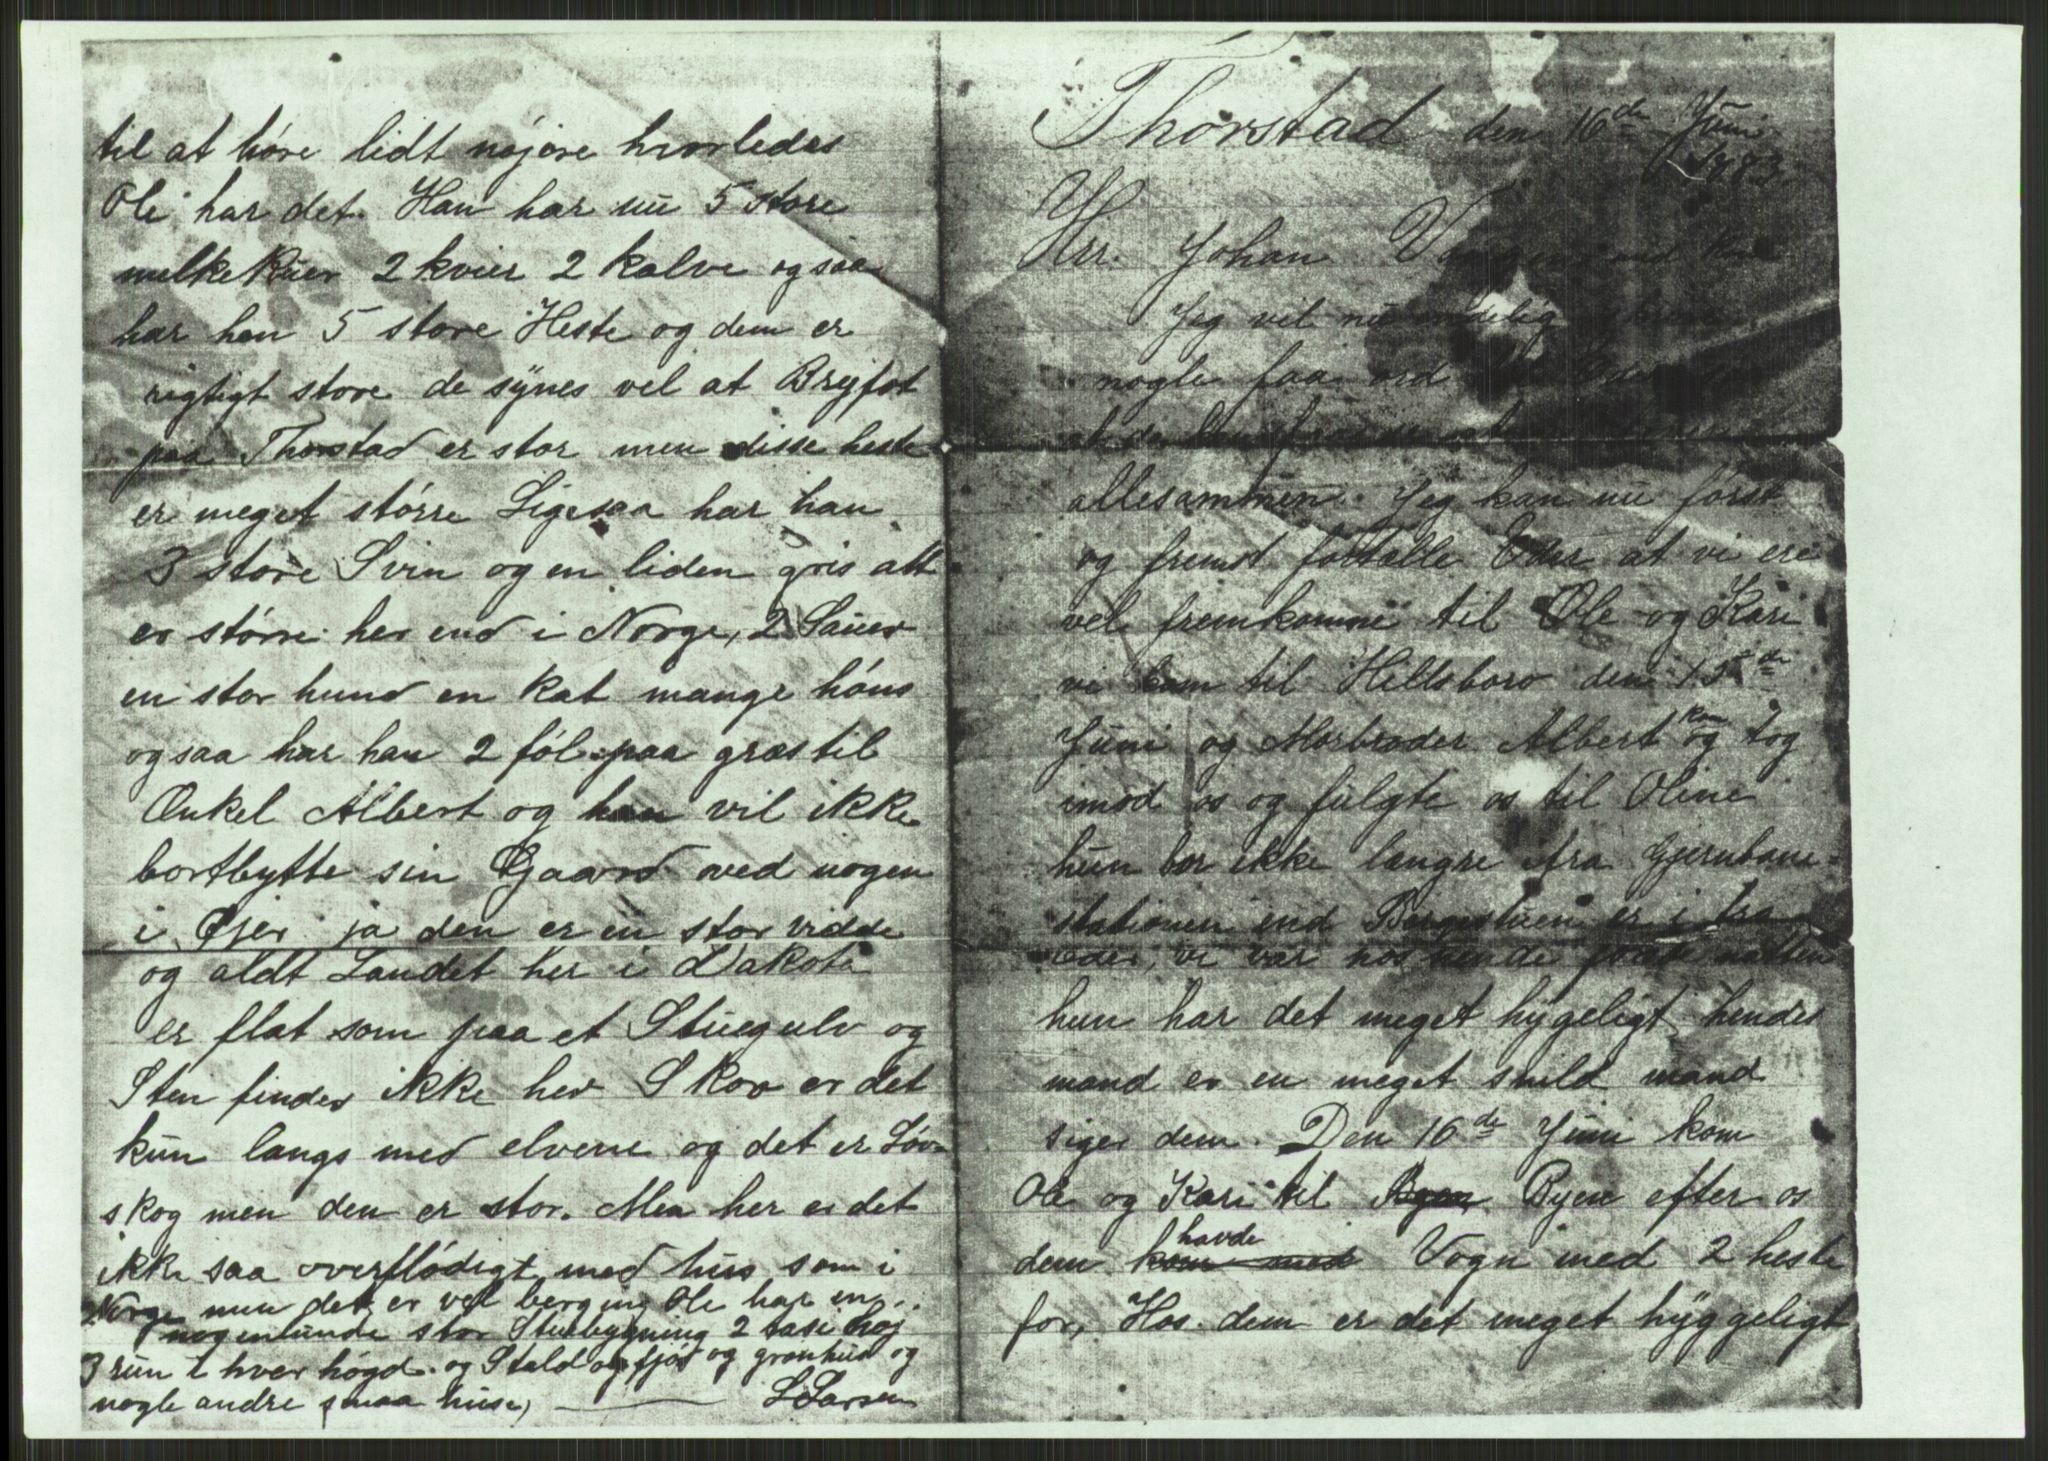 Thorstad den 16de Juni
1883.
Hrr. Johan
Jeg vil nu
nogle faa ord
allesammen. Jeg kan nu først
og fremst fortælle Eder at vi ere
vel fremkomne til Ole og Kari
vi kom til Hillsboro den 15de
Juni og Morbroder Albert kom og tog
imod os og fulgte os til Oline
hun bor ikke længre fra Jernbane-
stationen end Bergestuen er i fra
eder, vi var hos hende første natten
hun har det meget hygeligt, hendes
mand er en meget snild mand
siger dem. Den 16de Juni kom
Ole og Kari til Byen Byen efter os
dem kom med havde Vogn med 2 heste
for, Hos dem er det meget hyggeligt
til at høre lidt nøjere hvorledes
Ole har det. Han har nu 5 store
melkekuer 2 kvier 2 kalve ogsaa
har han 5 store Heste og dem er
rigtigt store de synes vel at Brejfot
paa Thorstad er stor men disse heste
er meget større Ligesaa har han
3 store Svin og en liden gris alt
er større her end i Norge, 2 Sauer
en stor hund en kat mange høns
ogsaa har han 2 føl paa græs til
Onkel Albert og han vil ikke
bortbytte sin Gaard med nogen
i Øjer ja den er en stor vidde
og aldt Landet her i Dakota
er flat som paa et Stuegulv og
Sten findes ikke her Skov er det
kun langs med elvene og det er Løv-
skog men den er stor. Men her er det
ikke saa overflødigt med hus som i
Norge men det er vel berging Ole har en
nogenlunde stor Stuebygning 2 tase høj
3 rum i hver høgd og Stald og fjøs og grønhus og
nogle andre smaa huse,
L Larsen